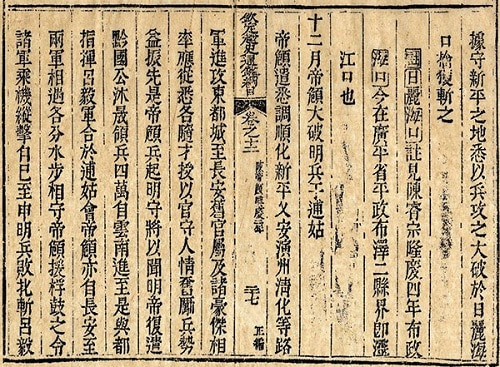 據守新平之地悉以兵攻之大破於日麗海
口擒復斬之
日麗海口註見陳睿宗隆慶四年布政
海口今在廣平省平政布澤二縣界即
江口也
十二月帝顗大破明兵于逋姑
帝顗遣悉調順化新平乂安演州清化等路
欽定越史通鑑綱目 卷之十二 二十七 正編
軍進攻東都城至長安舊官屬及諸豪傑相
率願從悉各隨才授以官守人情奮勵兵勢
益振先是帝顗兵起明守將以聞明帝復遣
黔國公沐晟領兵四萬自雲南進至是與都
指揮呂毅軍合於逋姑會帝顗亦自長安至
兩軍相遇各分水步相守帝顗援桴鼓之令
諸軍乘機縱擊自巳至申明兵敗北斬呂毅